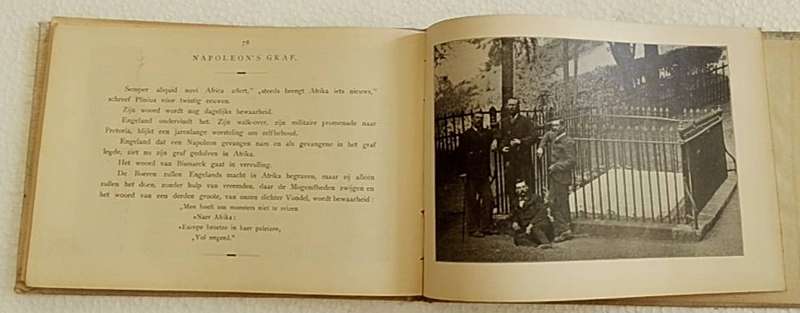 78
NAPOLEON'S GRAF.
Semper aliquid novi Africa afert," „steeds brengt Afrika iets nieuws,"
schreef Plinius voor twintig eeuwen.
Zijn woord wordt nog dagelijks bewaarheid.
Engeland ondervindt het. Zijn walk-over, zijn militaire promenade naar
Pretoria, blijkt een jarenlange worsteling om zelfbehoud.
Engeland dat een Napoleon gevangen nam en als gevangene in het graf
legde, ziet nu zijn graf gedolven in Afrika.
Het woord van Bismarck gaat in vervulling.
De Boeren zullen Engelands macht in Afrika begraven, maar zij alleen
zullen het doen, zonder hulp van vreemden, daar de Mogendheden zwijgen en
het woord van een derden groote, van onzen dichter Vondel, wordt bewaarheid:
„Men hoeft om monsters niet te reizen
»Naer Afrika:
»Europe broetze in haer paleizen,
„Vol ongenâ."